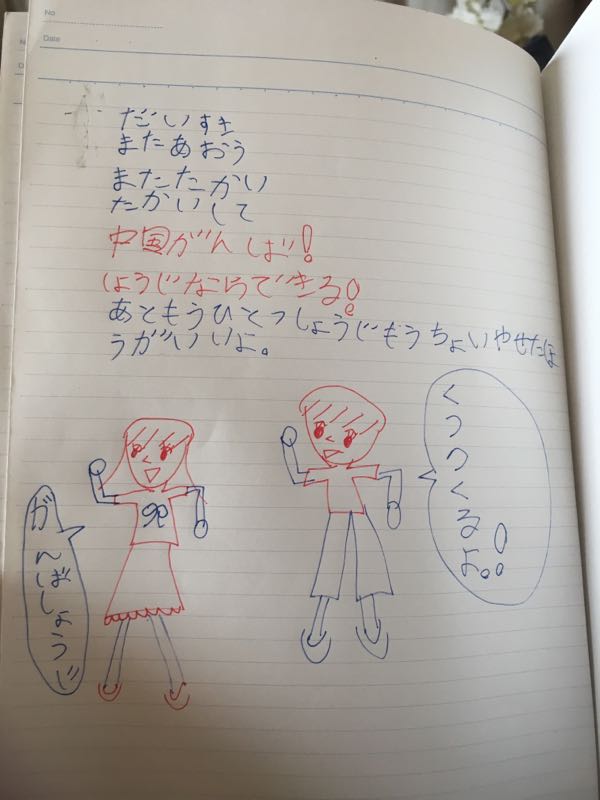 No
Date
だいすき
またあおう
またたかい
たかいして
中国がんば!
しょうじならできる!
あともうひとつしょうじもうちょいやせたほ
うがいいよ。
くつつくるよ。!
がんばしょうじ